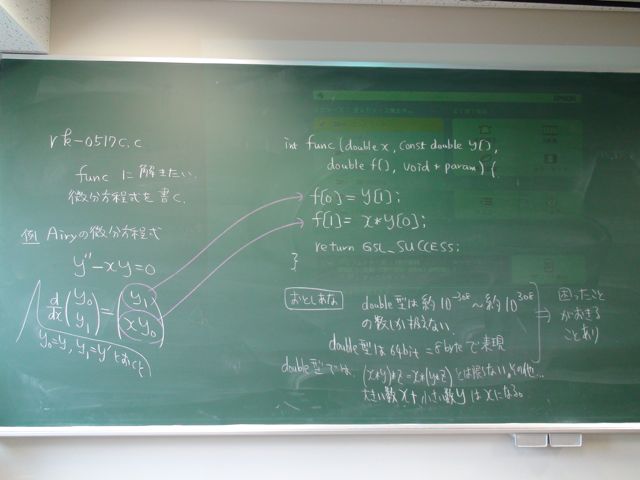 rk-0517c.c
func に解きたい
微分方程式を書く.
例 Airyの微分方程式
y''-xy=0
d/dx (y0 y1) = (y1 xy0)
y0=y, y1=y'とおくと
int func (double x, const double y[],
double f[], void * param) {
f[0] = y[1];
f[1] = x*y[0];
return GSL_SUCCESS;
}
おとしあな
double型は約10^-308 ~ 約10^308
の数しか扱えない.
double型は64bit=8byteで表現
⇒ 困ったこと
がおきる
ことあり
double型では, (x*y)*z=x*(y*z) とは限らない。その他...
大きい数x+小さい数y はxになる。
EPSON